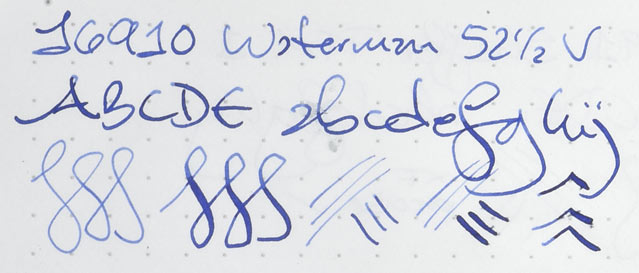 16910 Waterman 52½ V
ABCDE abcdefghij